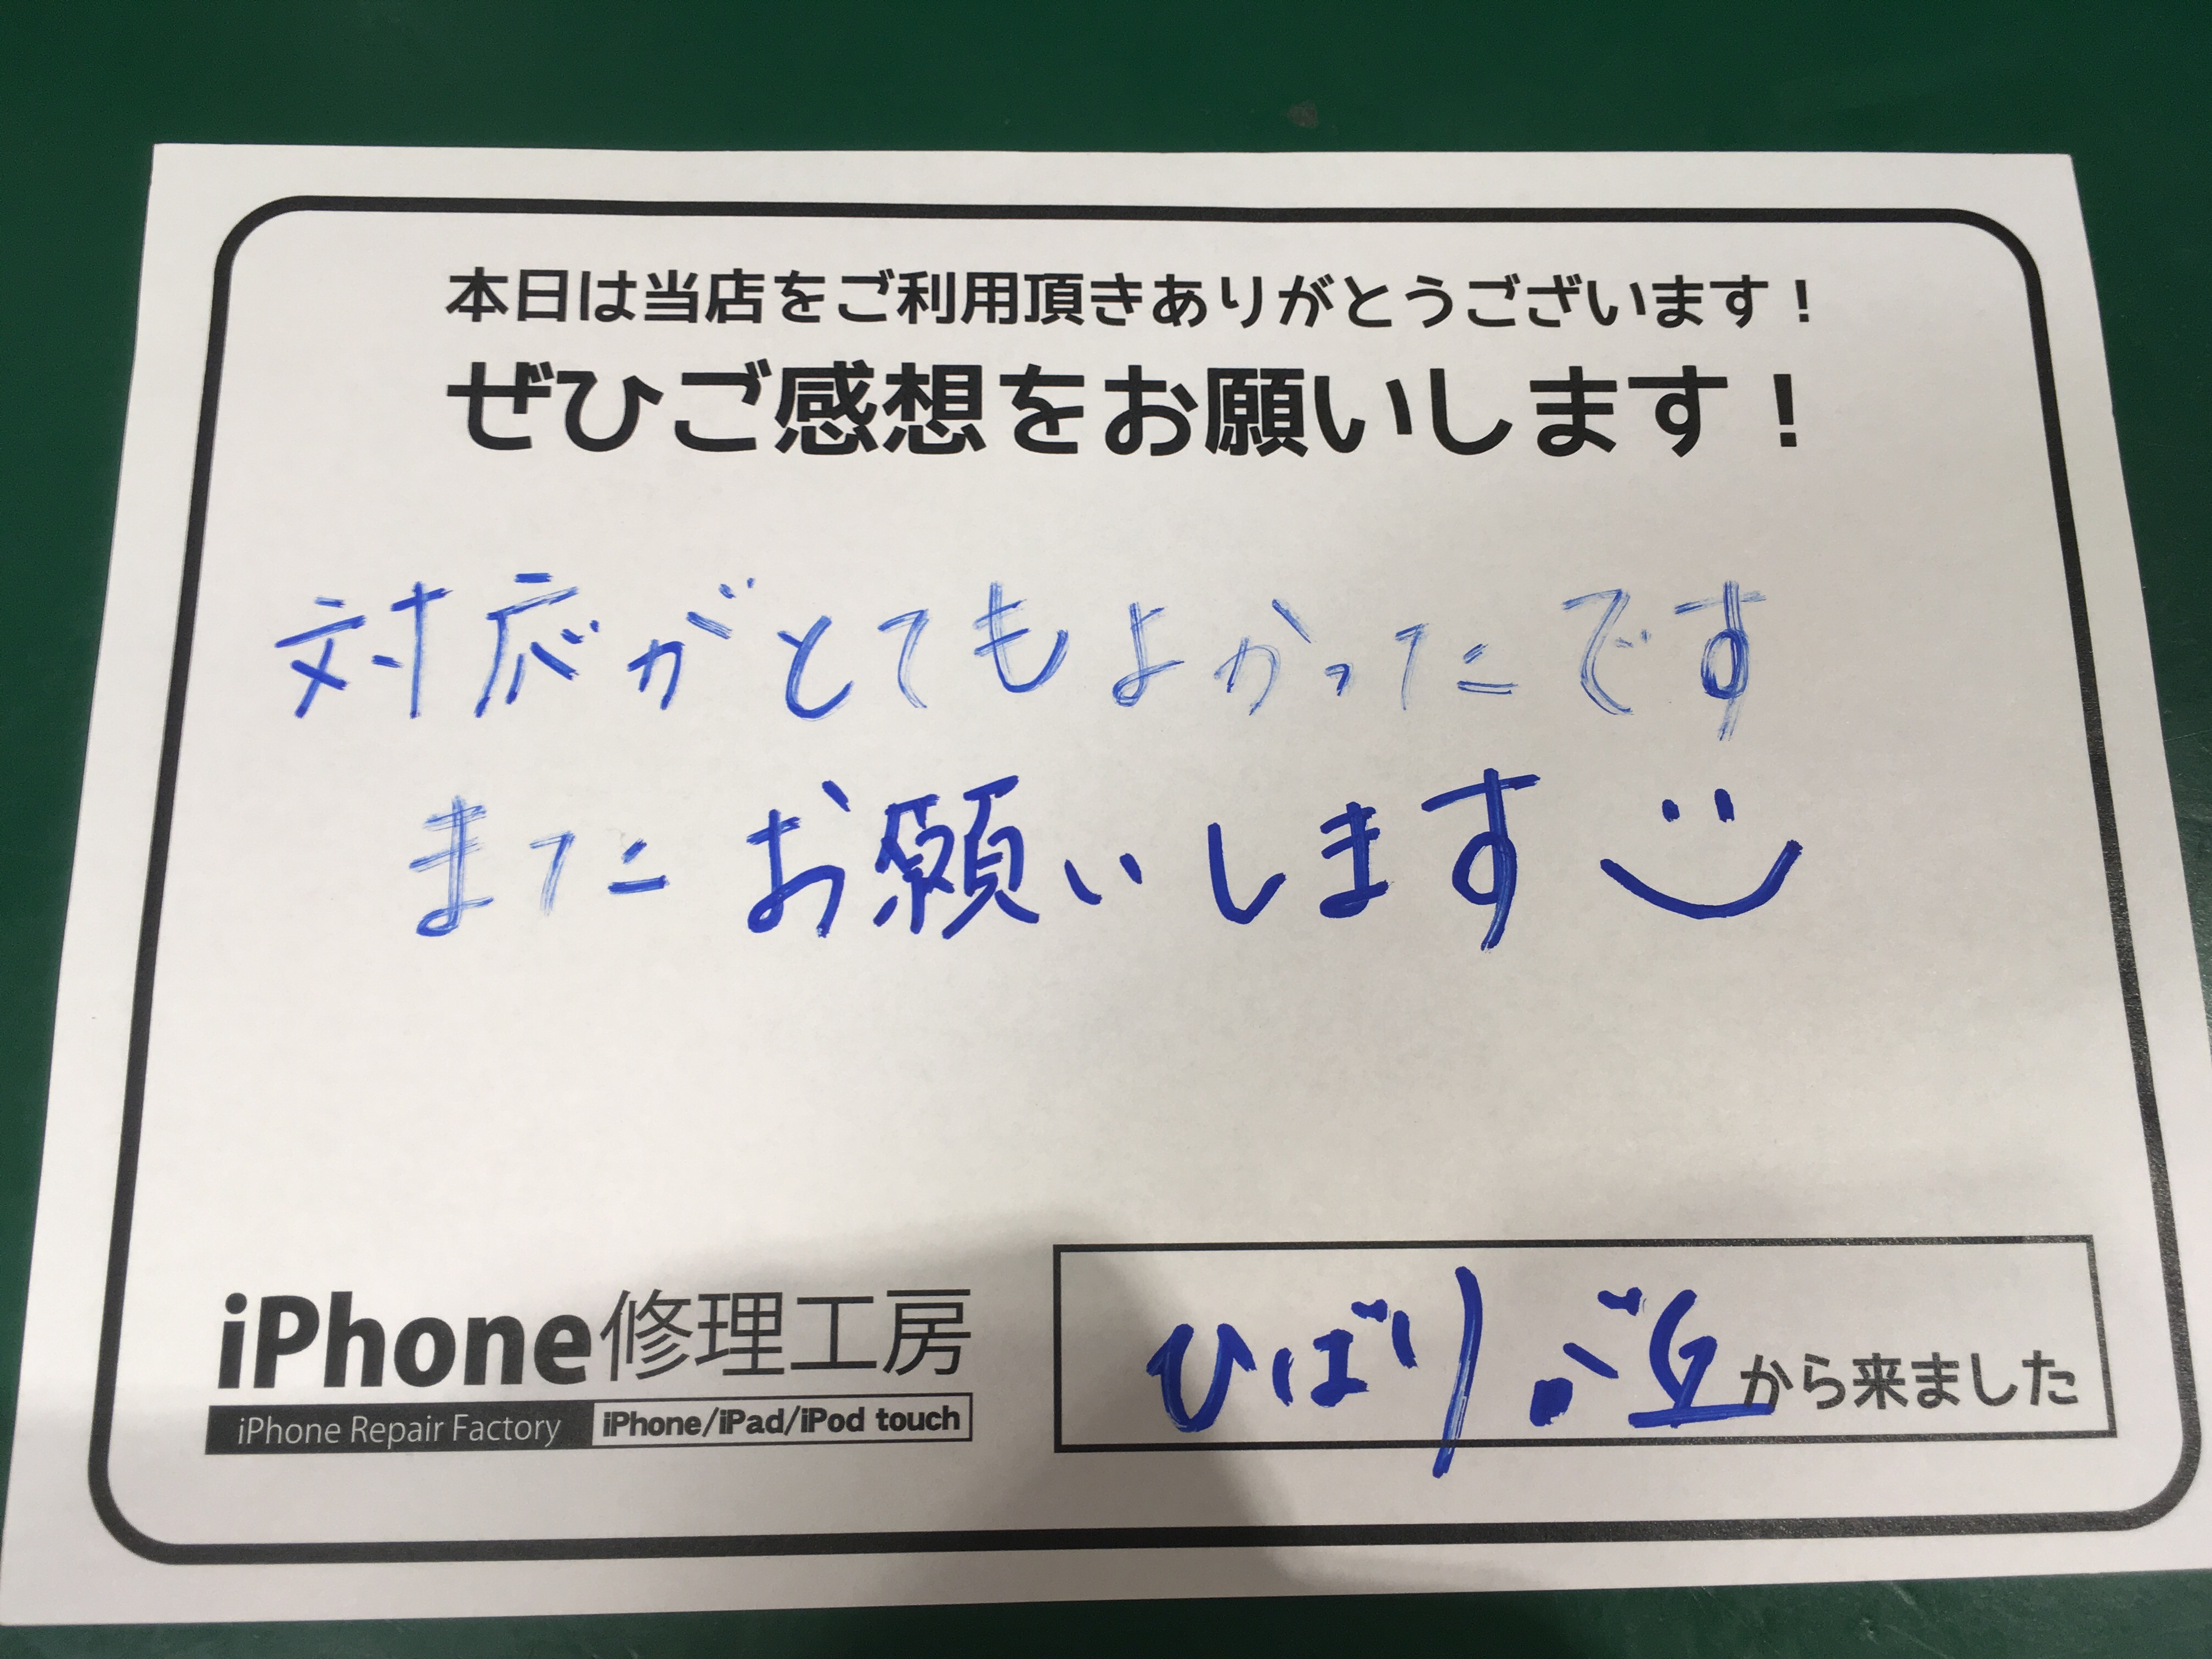 本日は当店をご利用頂きありがとうございます！
ぜひご感想をお願いします！
対応がとてもよかったです
また お願いします
iPhone修理工房
iPhone Repair Factory iPhone/iPad/iPod touch
ひばりが丘から来ました